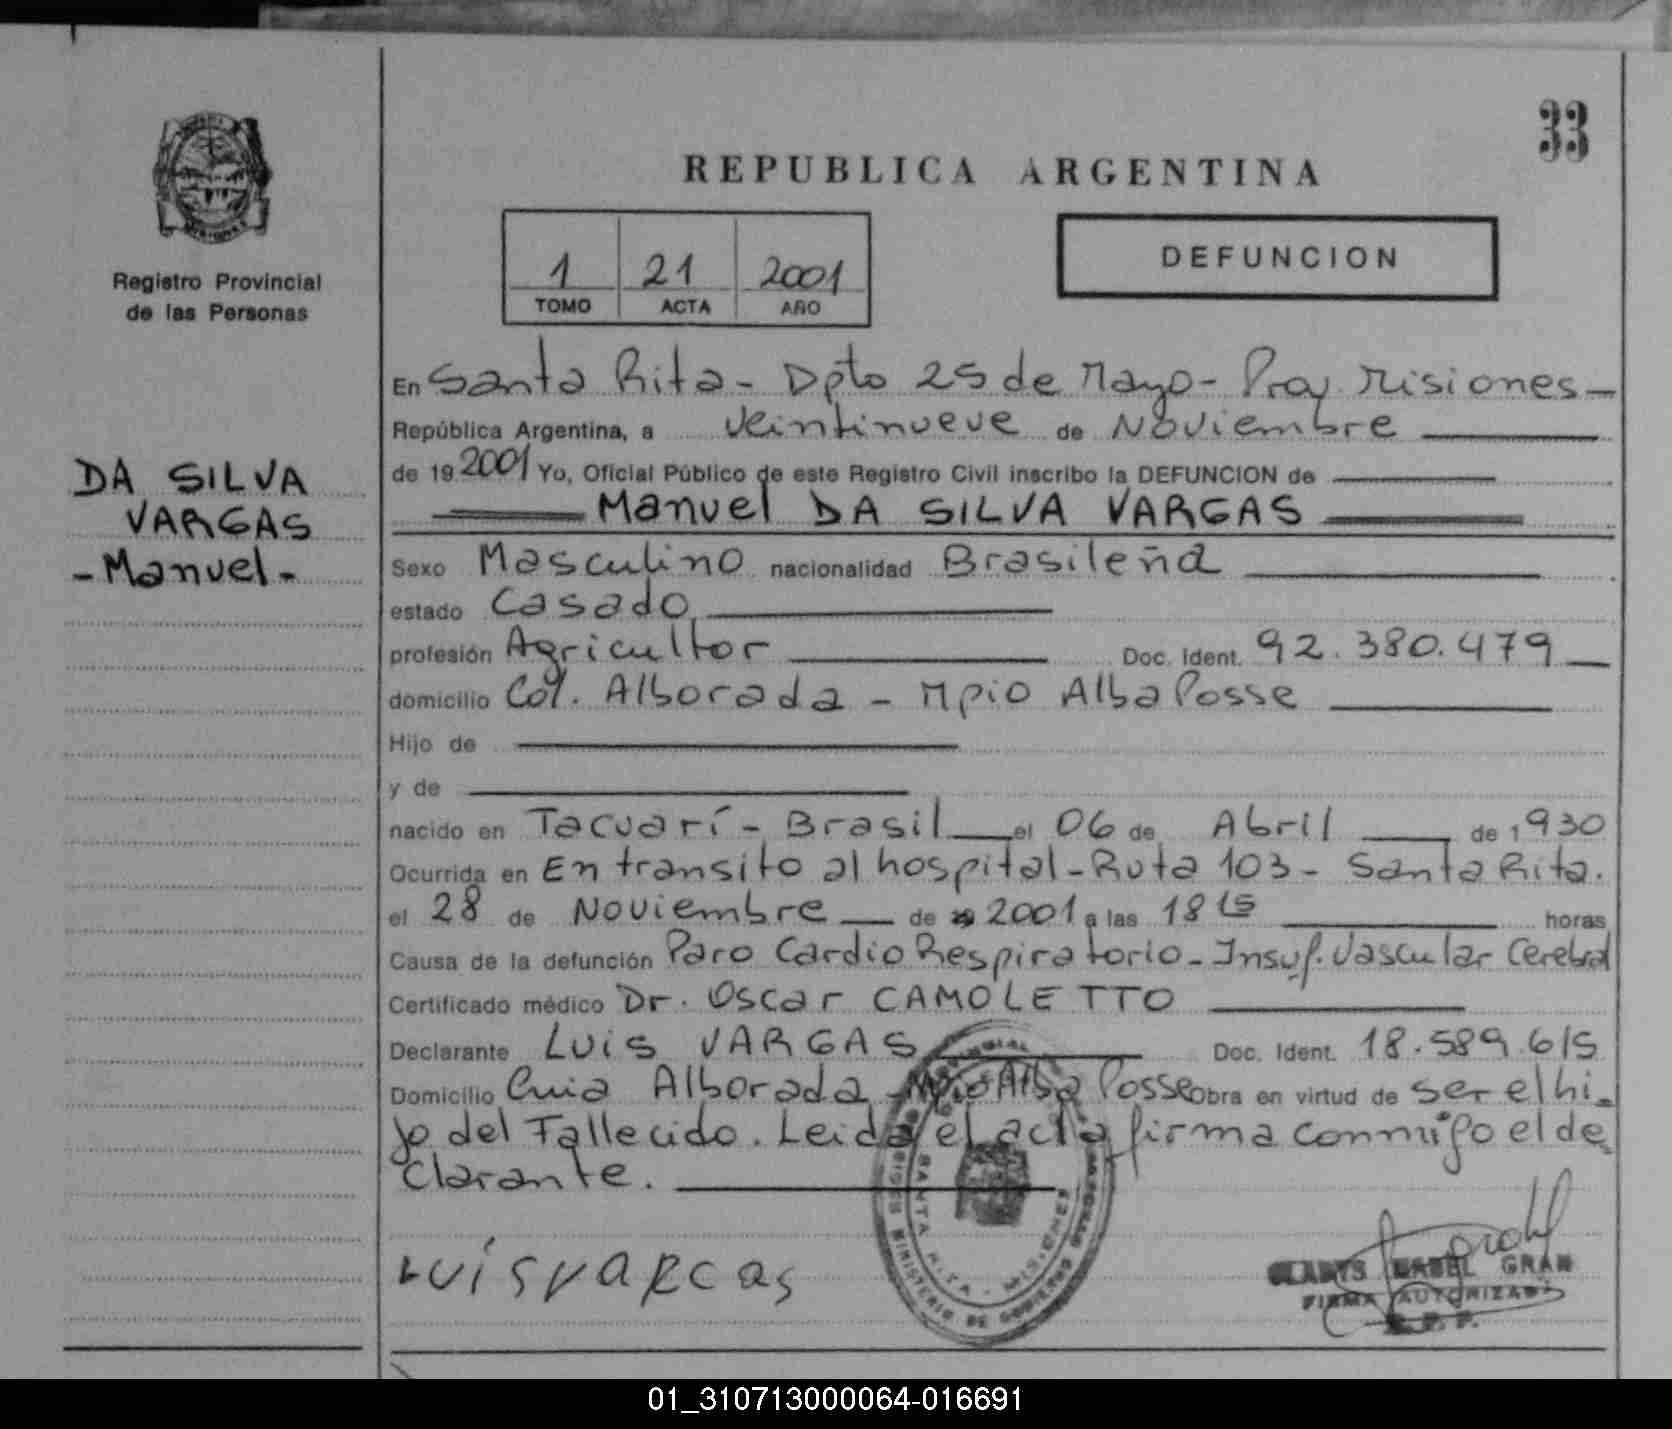 33
REPUBLICA ARGENTINA
Registro Provincial
de las Personas
1 21 2001
TOMO ACTA AÑO
DEFUNCION
DA SILVA
VARGAS
- Manuel -
En Santa Rita - Dpto 25 de Mayo - Prov Misiones -
República Argentina, a veintinueve de Noviembre
de 19 2001 Yo, Oficial Público de este Registro Civil inscribo la DEFUNCION de
Manuel DA SILVA VARGAS
Sexo Masculino nacionalidad Brasileña
estado Casado
profesión Agricultor Doc. Ident. 92.380.479
domicilio Col. Alborada - Mpio Alba Posse
Hijo de
y de
nacido en Tacuarí - Brasil el 06 de Abril de 1930
Ocurrida en En transito al hospital - Ruta 103 - Santa Rita.
el 28 de Noviembre de 2001 a las 18 15 horas
Causa de la defunción Paro Cardio Respiratorio - Insuf. Vascular Cerebral
Certificado médico Dr. Oscar CAMOLETTO
Declarante LUIS VARGAS Doc. Ident. 18.589.615
Domicilio Cnia Alborada - Mpio Alba Posse obra en virtud de ser el hi-
jo del Fallecido. Leida el acta firma conmigo el de
clarante.
SANTA RITA - MISIONES
MINISTERIO DE GOBIERNO
Luis vargas
GLADYS ISABEL GRAN
FIRMA AUTORIZADA
R.P.P.
01_310713000064-016691